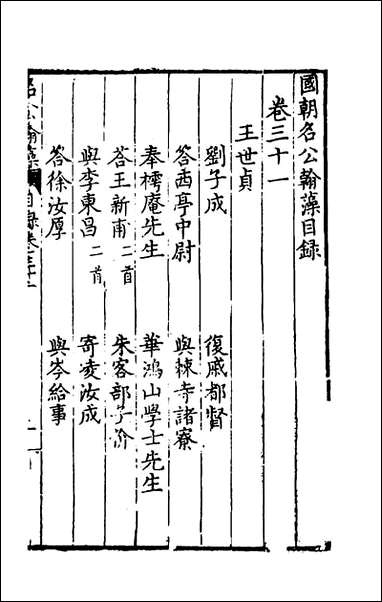 國朝名公翰藻目録
卷三十一
王世貞
劉子成 復戚都督
答西亭中尉 與棘寺諸寮
奉樗庵先生 華鴻山學士先生
荅王新甫二首 朱客部子价
與李東昌二首 寄凌汝成
答徐汝厚 與岑給事
名公翰藻 目録卷三十一